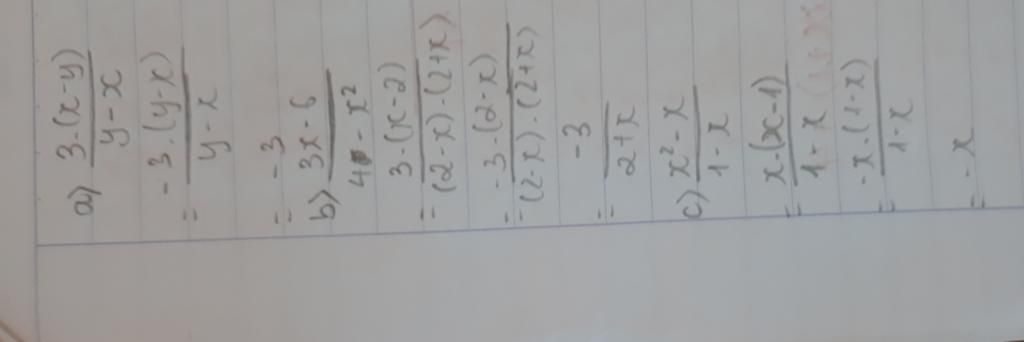 a) 3.(x-y)
y-x
= -3.(y-x)
y-x
= -3
b) 3x-6
4-x²
= 3.(x-2)
(2-x).(2+x)
= -3.(2-x)
(2-x).(2+x)
= -3
2+x
c) x²-x
1-x
= x.(x-1)
1-x
= -x.(1-x)
1-x
= -x